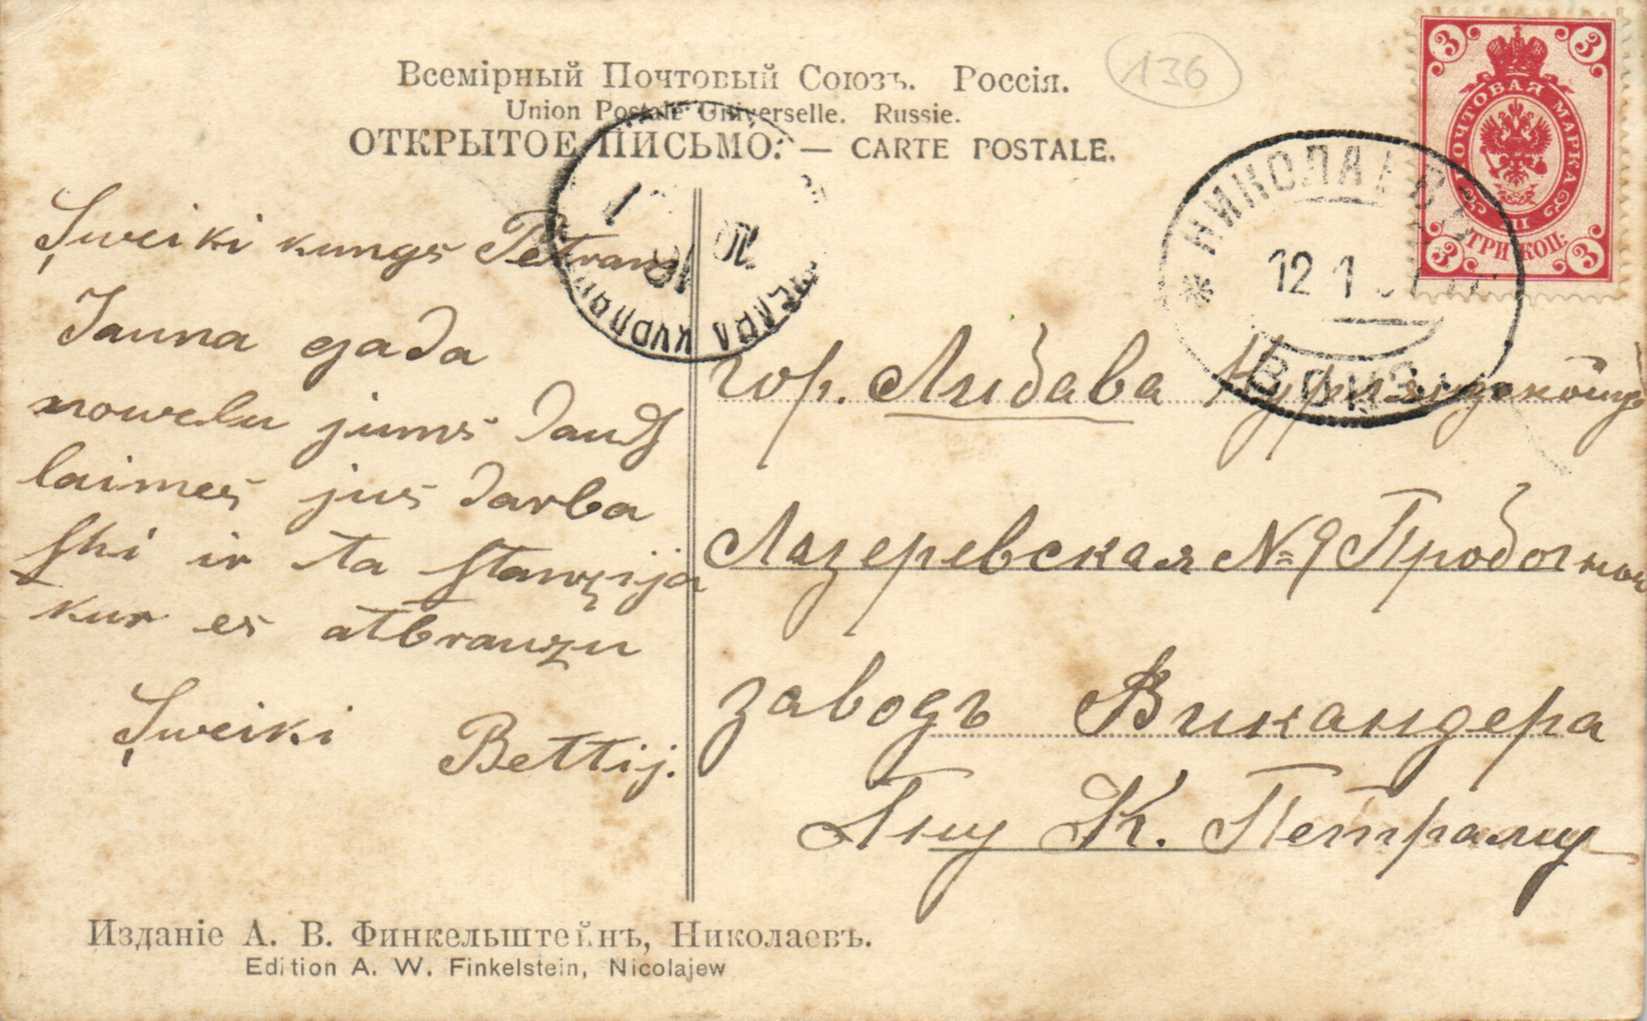 136
Всемірный Почтовый Союзъ. Россія.
Union Postale Universelle. Russie.
ОТКРЫТОЕ ПИСЬМО: — CARTE POSTALE.
3 3
ПОЧТОВАЯ МАРКА
ТРИ КОП:
3 3
НИКОЛАЕВЪ
12 1
Sweiki kungs Petrams
Jauna gada
nowelu jums daudz
laimes jus darba
shi ir ta stanzija
kur es atbrauzu
Sweiki
Bettij.
гор. Либава
Лазеревская № 9 Пробочный
заводъ Викандера
К. Петраму
Изданіе А. В. Финкельштейнъ, Николаевъ.
Edition A. W. Finkelstein, Nicolajew